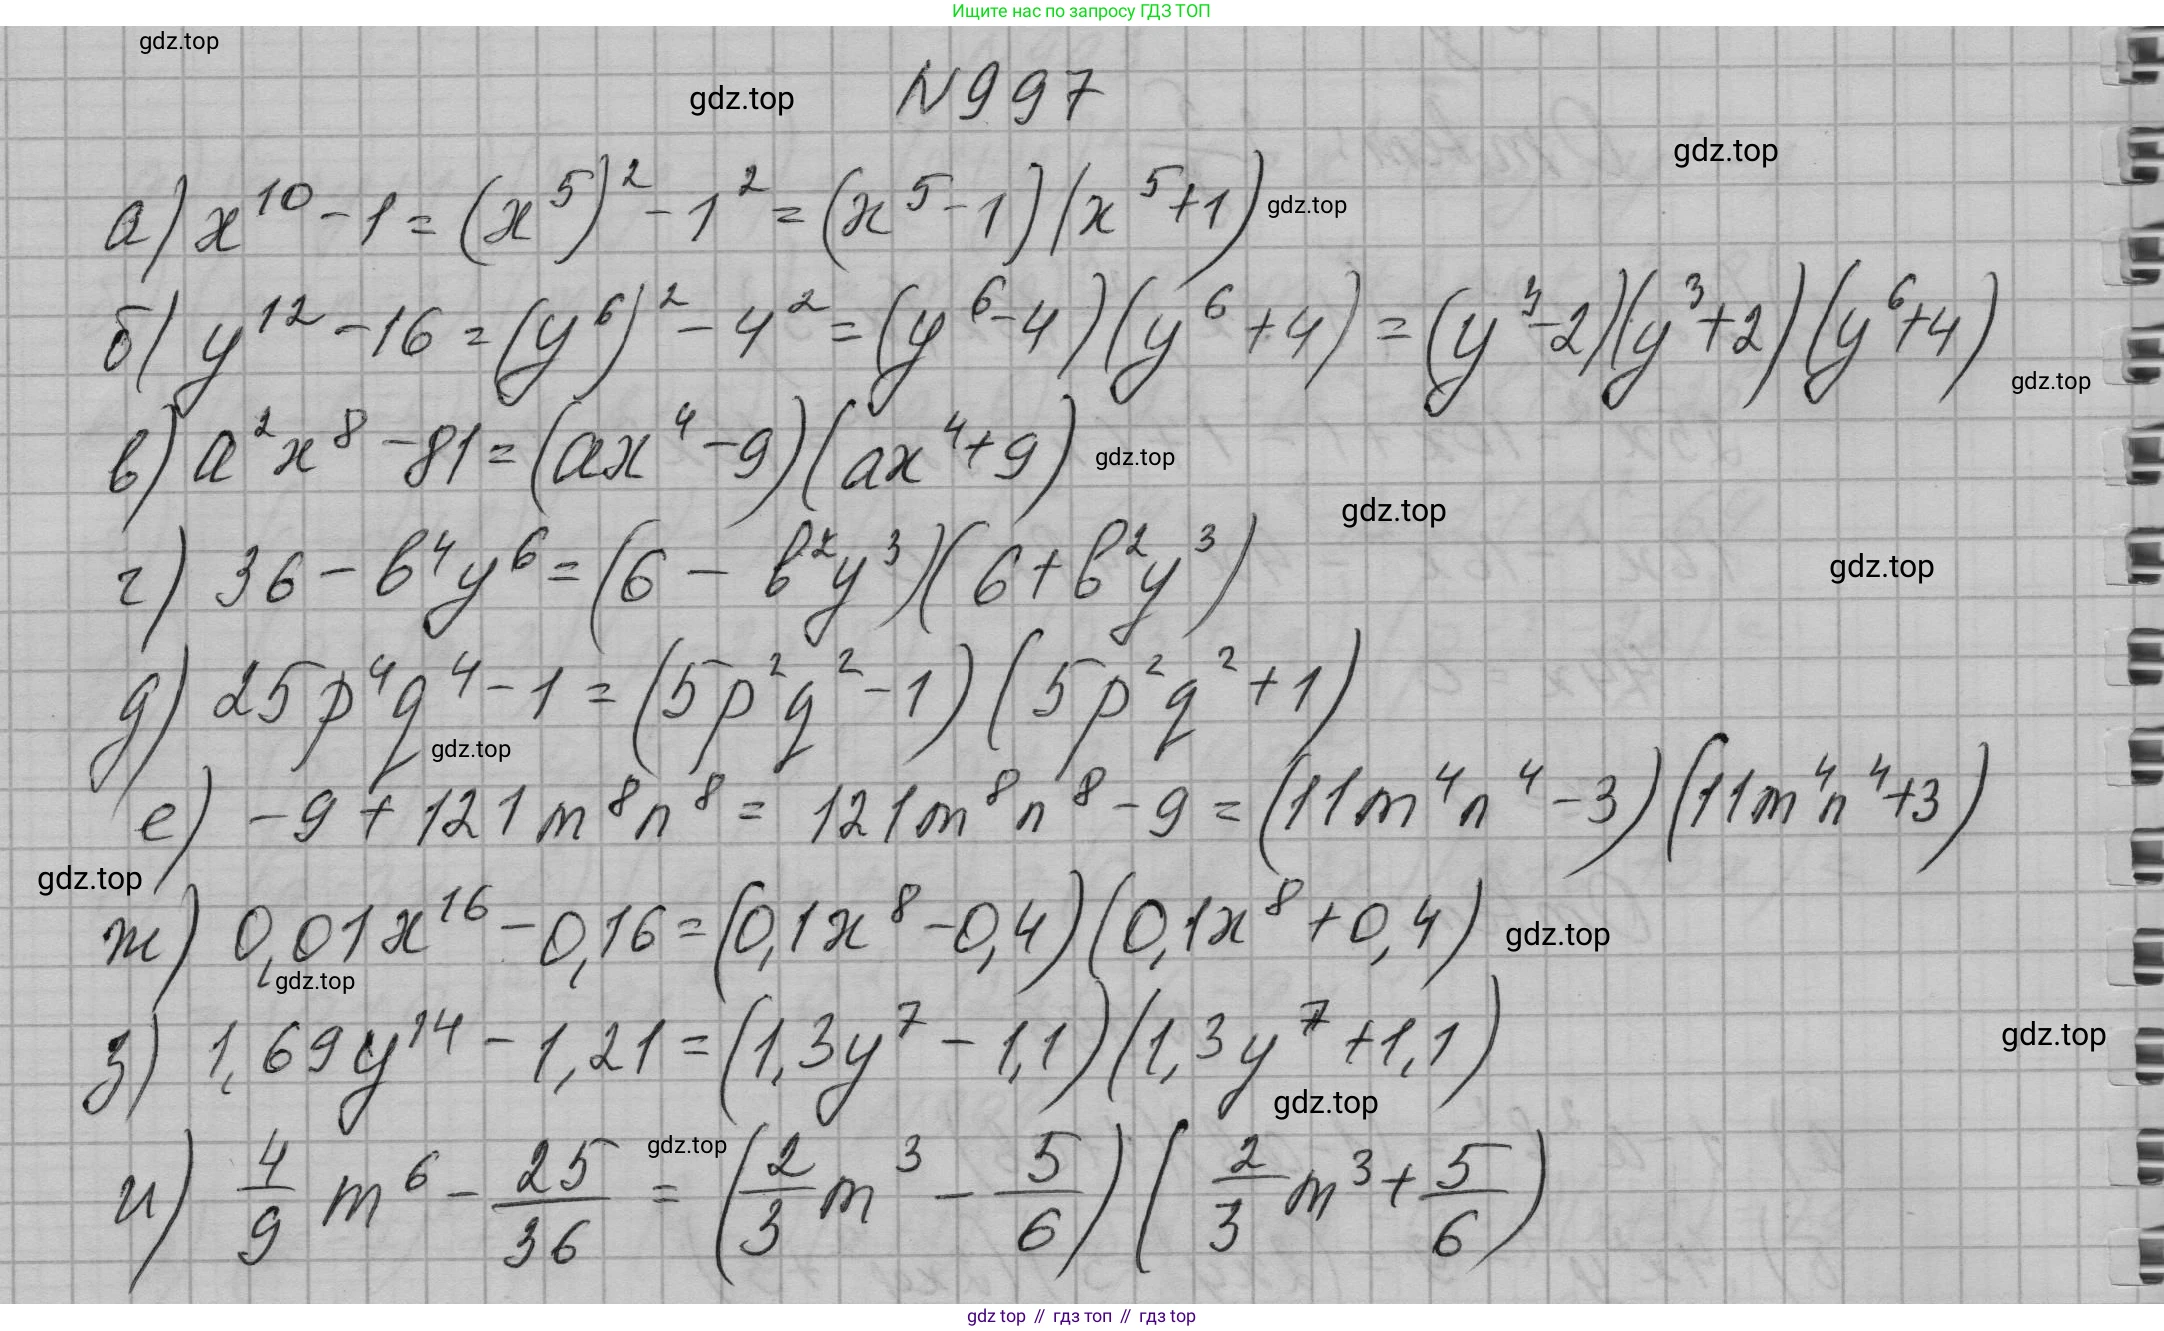 Ищите нас по запросу ГДЗ ТОП
gdz.top
gdz.top
N 997
gdz.top
а) x¹⁰ - 1 = (x⁵)² - 1² = (x⁵ - 1)(x⁵ + 1)
gdz.top
б) y¹² - 16 = (y⁶)² - 4² = (y⁶ - 4)(y⁶ + 4) = (y³ - 2)(y³ + 2)(y⁶ + 4)
gdz.top
в) a²x⁸ - 81 = (ax⁴ - 9)(ax⁴ + 9)
gdz.top
gdz.top
г) 36 - b⁴y⁶ = (6 - b²y³)(6 + b²y³)
gdz.top
д) 25p⁴q⁴ - 1 = (5p²q² - 1)(5p²q² + 1)
gdz.top
е) -9 + 121m⁸n⁸ = 121m⁸n⁸ - 9 = (11m⁴n⁴ - 3)(11m⁴n⁴ + 3)
gdz.top
ж) 0,01x¹⁶ - 0,16 = (0,1x⁸ - 0,4)(0,1x⁸ + 0,4)
gdz.top
gdz.top
з) 1,69y¹⁴ - 1,21 = (1,3y⁷ - 1,1)(1,3y⁷ + 1,1)
gdz.top
gdz.top
gdz.top
и) 4/9 m⁶ - 25/36 = (2/3 m³ - 5/6)(2/3 m³ + 5/6)
gdz top // гдз топ // гдз top